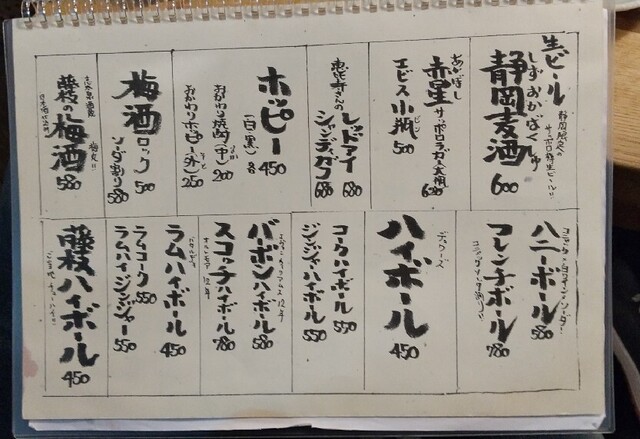 生ビール
しずおかばくしゅ
静岡麦酒
静岡限定の
サッポロ樽生ビール!!
600
あかぼし
赤星
サッポロラガー大瓶
680
エビス小瓶
500
恵比寿さんの
レッドアイ
680
シャンディガフ
680
ホッピー
(白・黒)各
450
おかわり焼酎(中)
200
おかわりホッピー(外)
250
梅酒
ロック
500
ソーダ割り
580
藤枝の
梅酒
580
ハニーボール
580
フレンチボール
780
デュワーズ
ハイボール
450
コークハイボール
550
ジンジャーハイボール
550
バーボンハイボール
580
スコッチハイボール
780
ラムハイボール
450
ラムコーク
550
ラムハイジンジャー
550
藤枝ハイボール
450